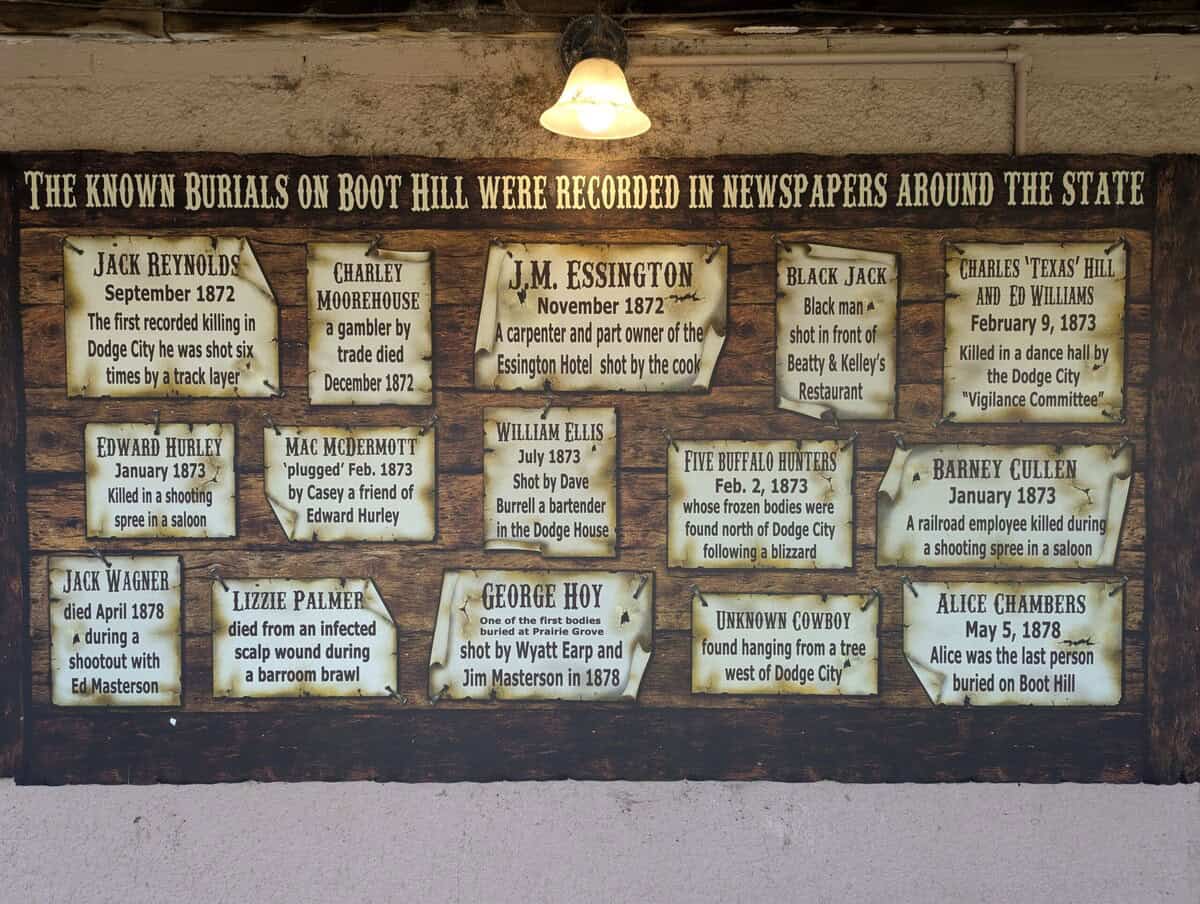 THE KNOWN BURIALS ON BOOT HILL WERE RECORDED IN NEWSPAPERS AROUND THE STATE
JACK REYNOLDS
September 1872
The first recorded killing in
Dodge City he was shot six
times by a track layer
CHARLEY
MOOREHOUSE
a gambler by
trade died
December 1872
J.M. ESSINGTON
November 1872
A carpenter and part owner of the
Essington Hotel shot by the cook
BLACK JACK
Black man
shot in front of
Beatty & Kelley's
Restaurant
CHARLES 'TEXAS' HILL
AND ED WILLIAMS
February 9, 1873
Killed in a dance hall by
the Dodge City
"Vigilance Committee"
EDWARD HURLEY
January 1873
Killed in a shooting
spree in a saloon
MAC MCDERMOTT
'plugged' Feb. 1873
by Casey a friend of
Edward Hurley
WILLIAM ELLIS
July 1873
Shot by Dave
Burrell a bartender
in the Dodge House
FIVE BUFFALO HUNTERS
Feb. 2, 1873
whose frozen bodies were
found north of Dodge City
following a blizzard
BARNEY CULLEN
January 1873
A railroad employee killed during
a shooting spree in a saloon
JACK WAGNER
died April 1878
during a
shootout with
Ed Masterson
LIZZIE PALMER
died from an infected
scalp wound during
a barroom brawl
GEORGE HOY
One of the first bodies
buried at Prairie Grove
shot by Wyatt Earp and
Jim Masterson in 1878
UNKNOWN COWBOY
found hanging from a tree
west of Dodge City
ALICE CHAMBERS
May 5, 1878
Alice was the last person
buried on Boot Hill